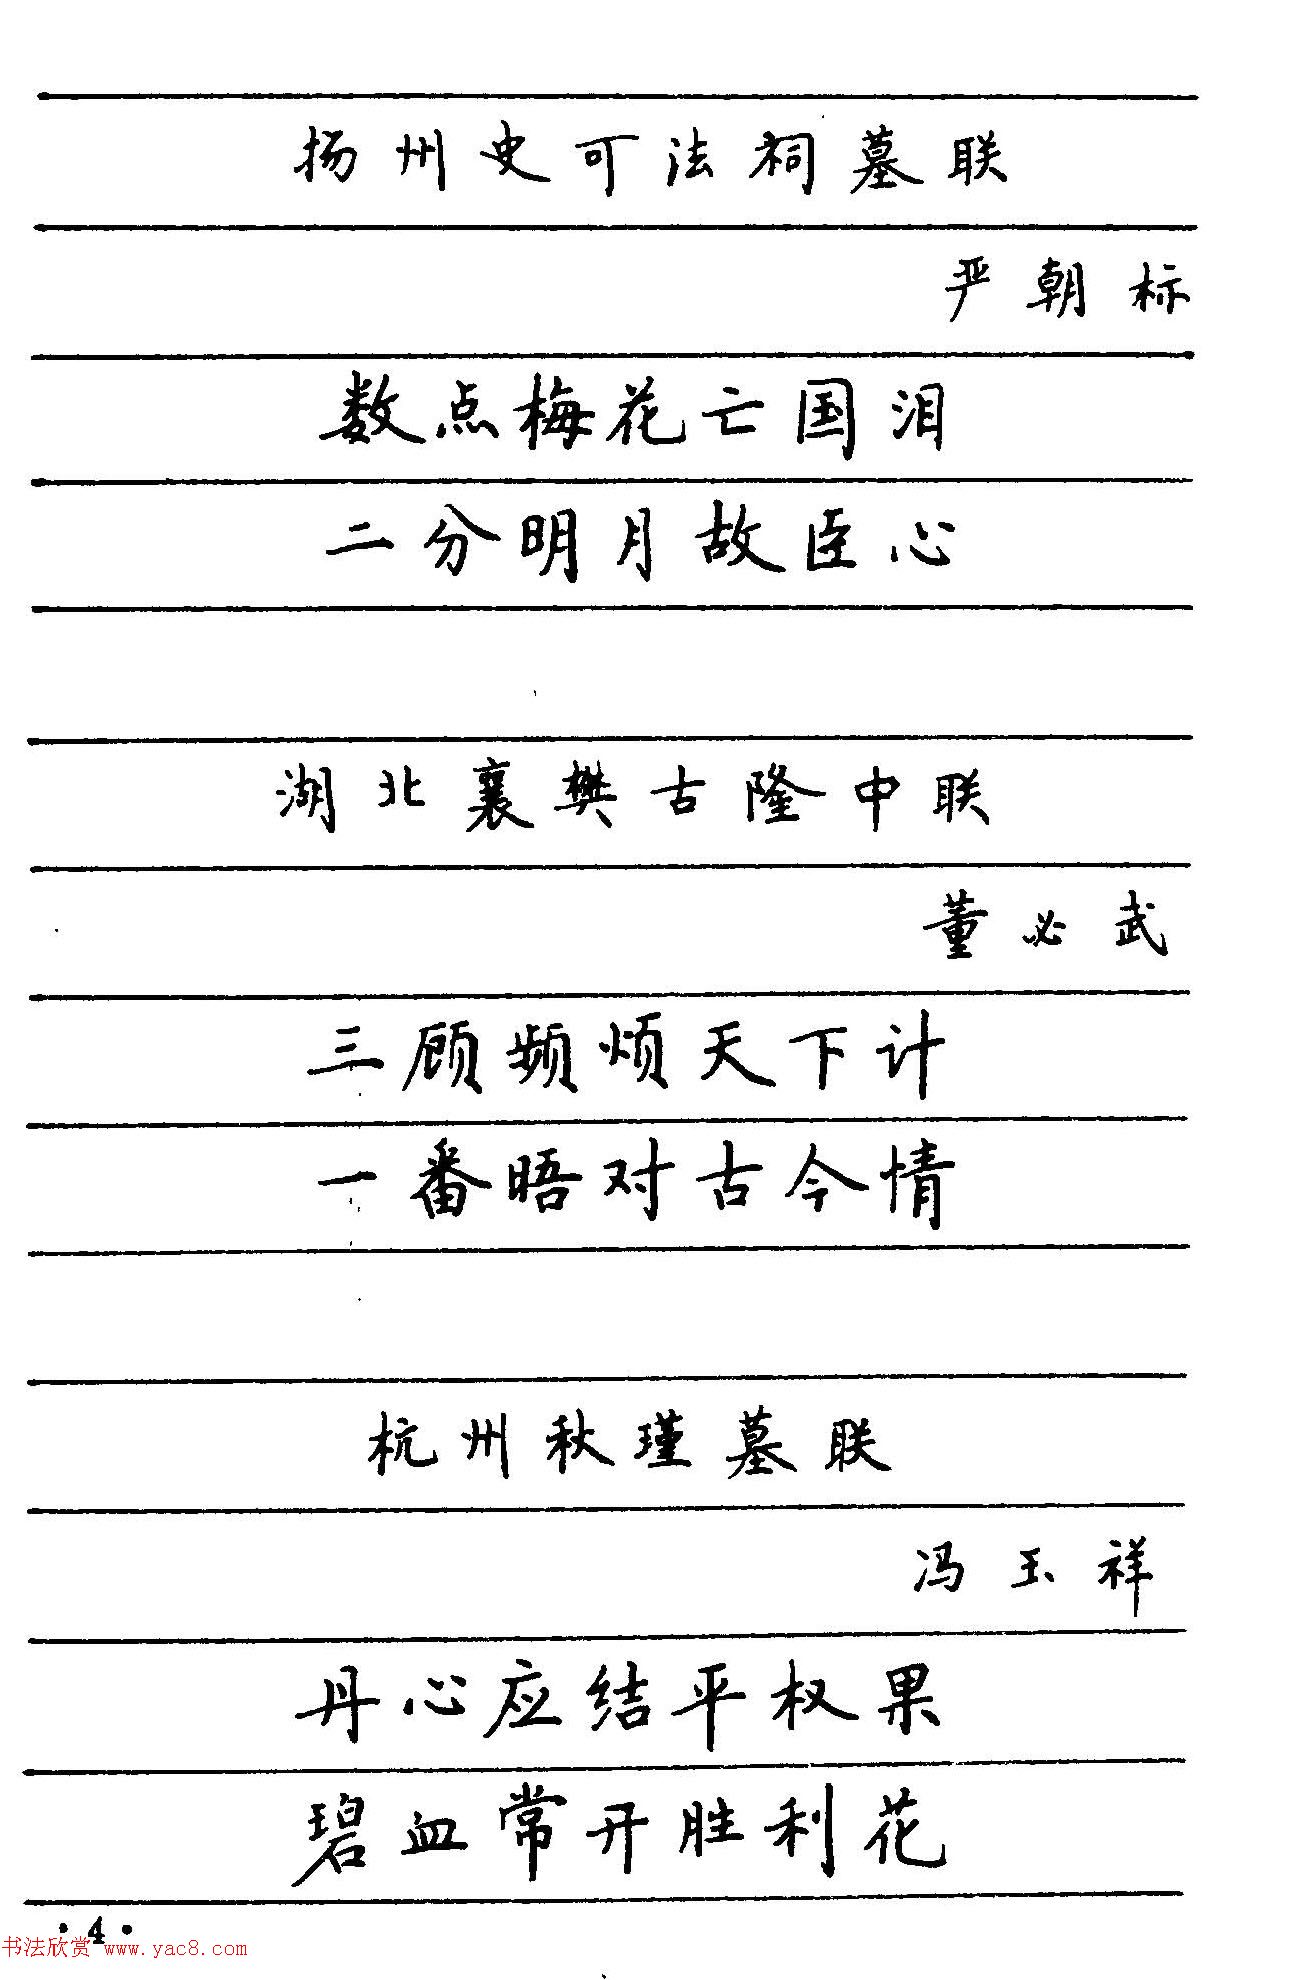 扬州史可法祠墓联
严朝标
数点梅花亡国泪
二分明月故臣心
湖北襄樊古隆中联
董必武
三顾频烦天下计
一番晤对古今情
杭州秋瑾墓联
冯玉祥
丹心应结平权果
碧血常开胜利花
·4·
书法欣赏 www.yac8.com